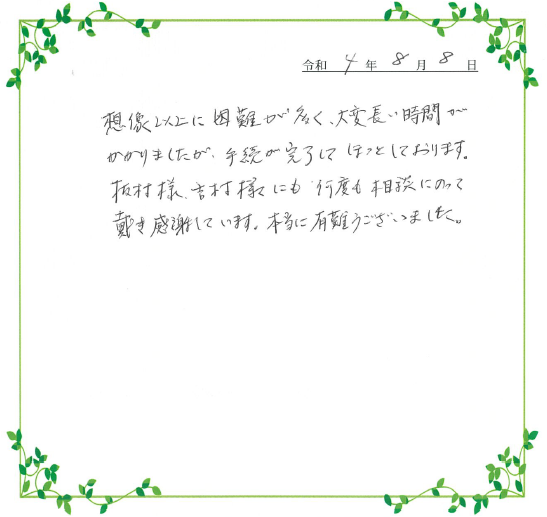 令和 4 年 8 月 8 日
想像以上に困難が多く、大変長い時間が
かかりましたが、手続が完了してほっとしております。
板村様、吉村様にも何度も相談にのって
戴き感謝しています。本当に有難うございました。